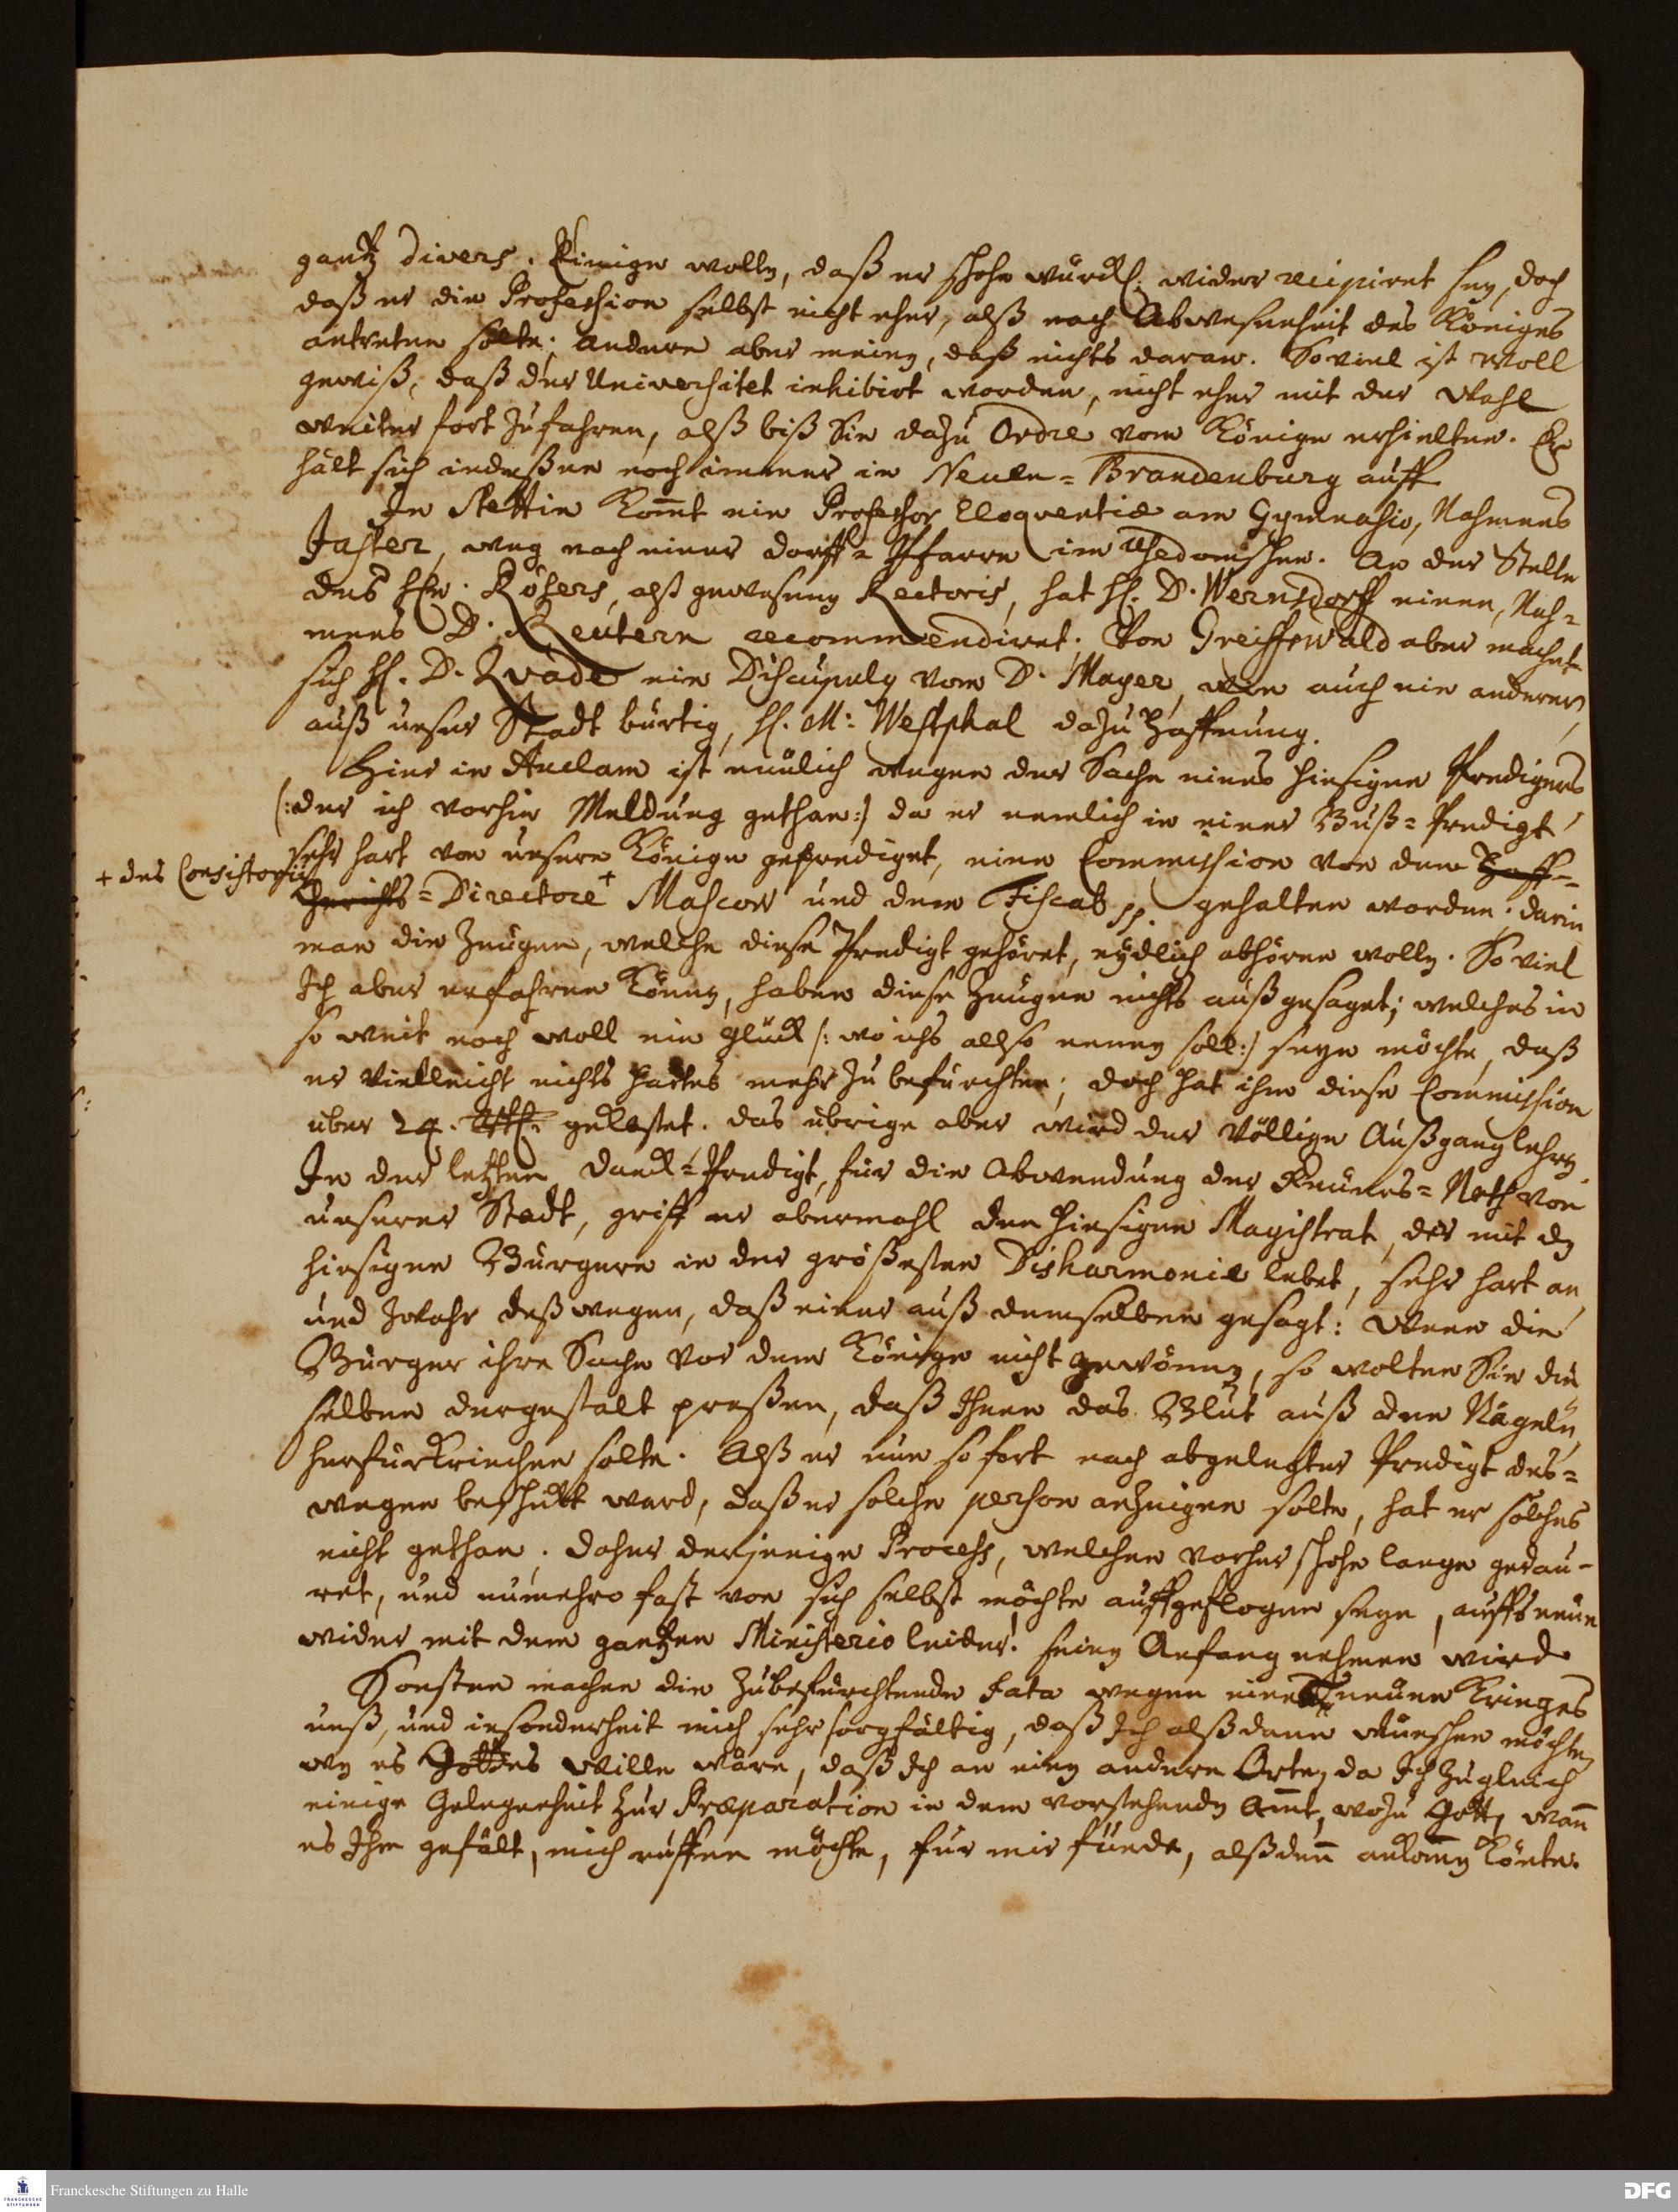 gantz divers. Einige wolln, daß er schohn würckl: wider recipiret sey, doch
daß er die Profession selbst nicht eher, alß nach Abwesenheit des Königes
antreten solte; andere aber mein̄, daß nichts daran. So viel ist woll
gewiß, daß der Universitet inhibirt worden, nicht eher mit der Wahl
weiter fort zufahren, alß biß Sie dazu Ordre vom Könige erhielten. Er
hält sich indeßen noch immer in Neuen-Brandenburg auff.
In Stettin kom̄t ein Professor Eloqventiæ am Gymnasio, Nahmens
Jaster, weg nach einer dorff-Pfarre im Usedomschen. An der Stelle
des HEn. Rösers, alß gewesen Rectoris, hat H. D. Wernsdorff einen, Nah-
mens D. Reutern recommendiret. Von Greiffswald aber machet
sich H. D. Qvade ein Discipulus vom D. Mayer, wie auch ein anderer,
auß unser Stadt bürtig, H. M: Westphal dazu Hoffnung.
Hier in Anclam ist neulich wegen der Sache eines hiesigen Predigers
(:der ich vorhin Meldung gethan:) da er nemlich in einer Buß-Predigt
sehr hart von unserm Könige geprediget, eine Commission von dem Hoff-
+ des Consistorii
Gerichts-Directore + Mascow und dem Fiscal pp. gehalten worden; darin
man die Zeugen, welche diese Predigt gehöret, eydlich abhören wolln. So viel
Ich aber erfahren könn̄, haben diese Zeugen nichts außgesaget; welches in
so weit noch woll ein Glück (: wo ichs also nenn̄ soll:) seyn möchte, daß
er vielleicht nichts hartes mehr zu befürchten; doch hat ihm diese Commission
über 24. Rthl. gekostet. das übrige aber wird der völlige Außgang lehrn̄.
In der letzten Danck-Predigt, für die Abwendung der Feuers-Noth von
unserer Stadt, griff er abermahl den hiesigen Magistrat, der mit dn̄
hiesigen Bürgern in der größesten Disharmonie lebet, sehr hart an,
und zwahr deßwegen, daß einer auß demselben gesagt: Wenn die
Bürger ihre Sache vor dem Könige nicht gewönn̄, so wolten Sie die
selben dergestalt preßen, daß Ihnen das Blut auß den Nägeln
herfürkriechen solte. Alß er nun sofort nach abgelegter Predigt des-
wegen beschickt ward, daß er solche person anzeigen solte, hat er solches
nicht gethan. Daher derjenige Process, welcher vorher schohn lange gedau-
ret, und nunmehro fast von sich selbst möchte auffgeflogen seyn, auffs neue
wider mit dem gantzen Ministerio leider! sein̄ Anfang nehmen wird.
Sonsten machen die zubefürchtende Fata wegen eines neuen Krieges
unß, und insonderheit mich sehr sorgfältig, daß Ich alßdann wünschen möchte,
wen̄ es Gottes Wille wäre, daß Ich an ein̄ andern Orte, da Ich zugleich
einige Gelegenheit zur Præparation in dem vorstehendn̄ Am̄t, wozu Gott, wan̄
es Ihm gefält, mich ruffen möchte, für mir fünde, alßden̄ ankom̄n könte.
Franckesche Stiftungen zu Halle
DFG